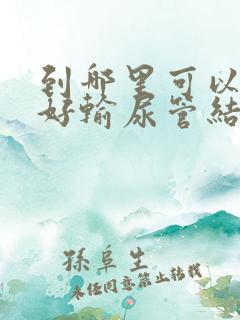 到哪里可以
好輸尿管結
孫阜生
未经同意禁止转载